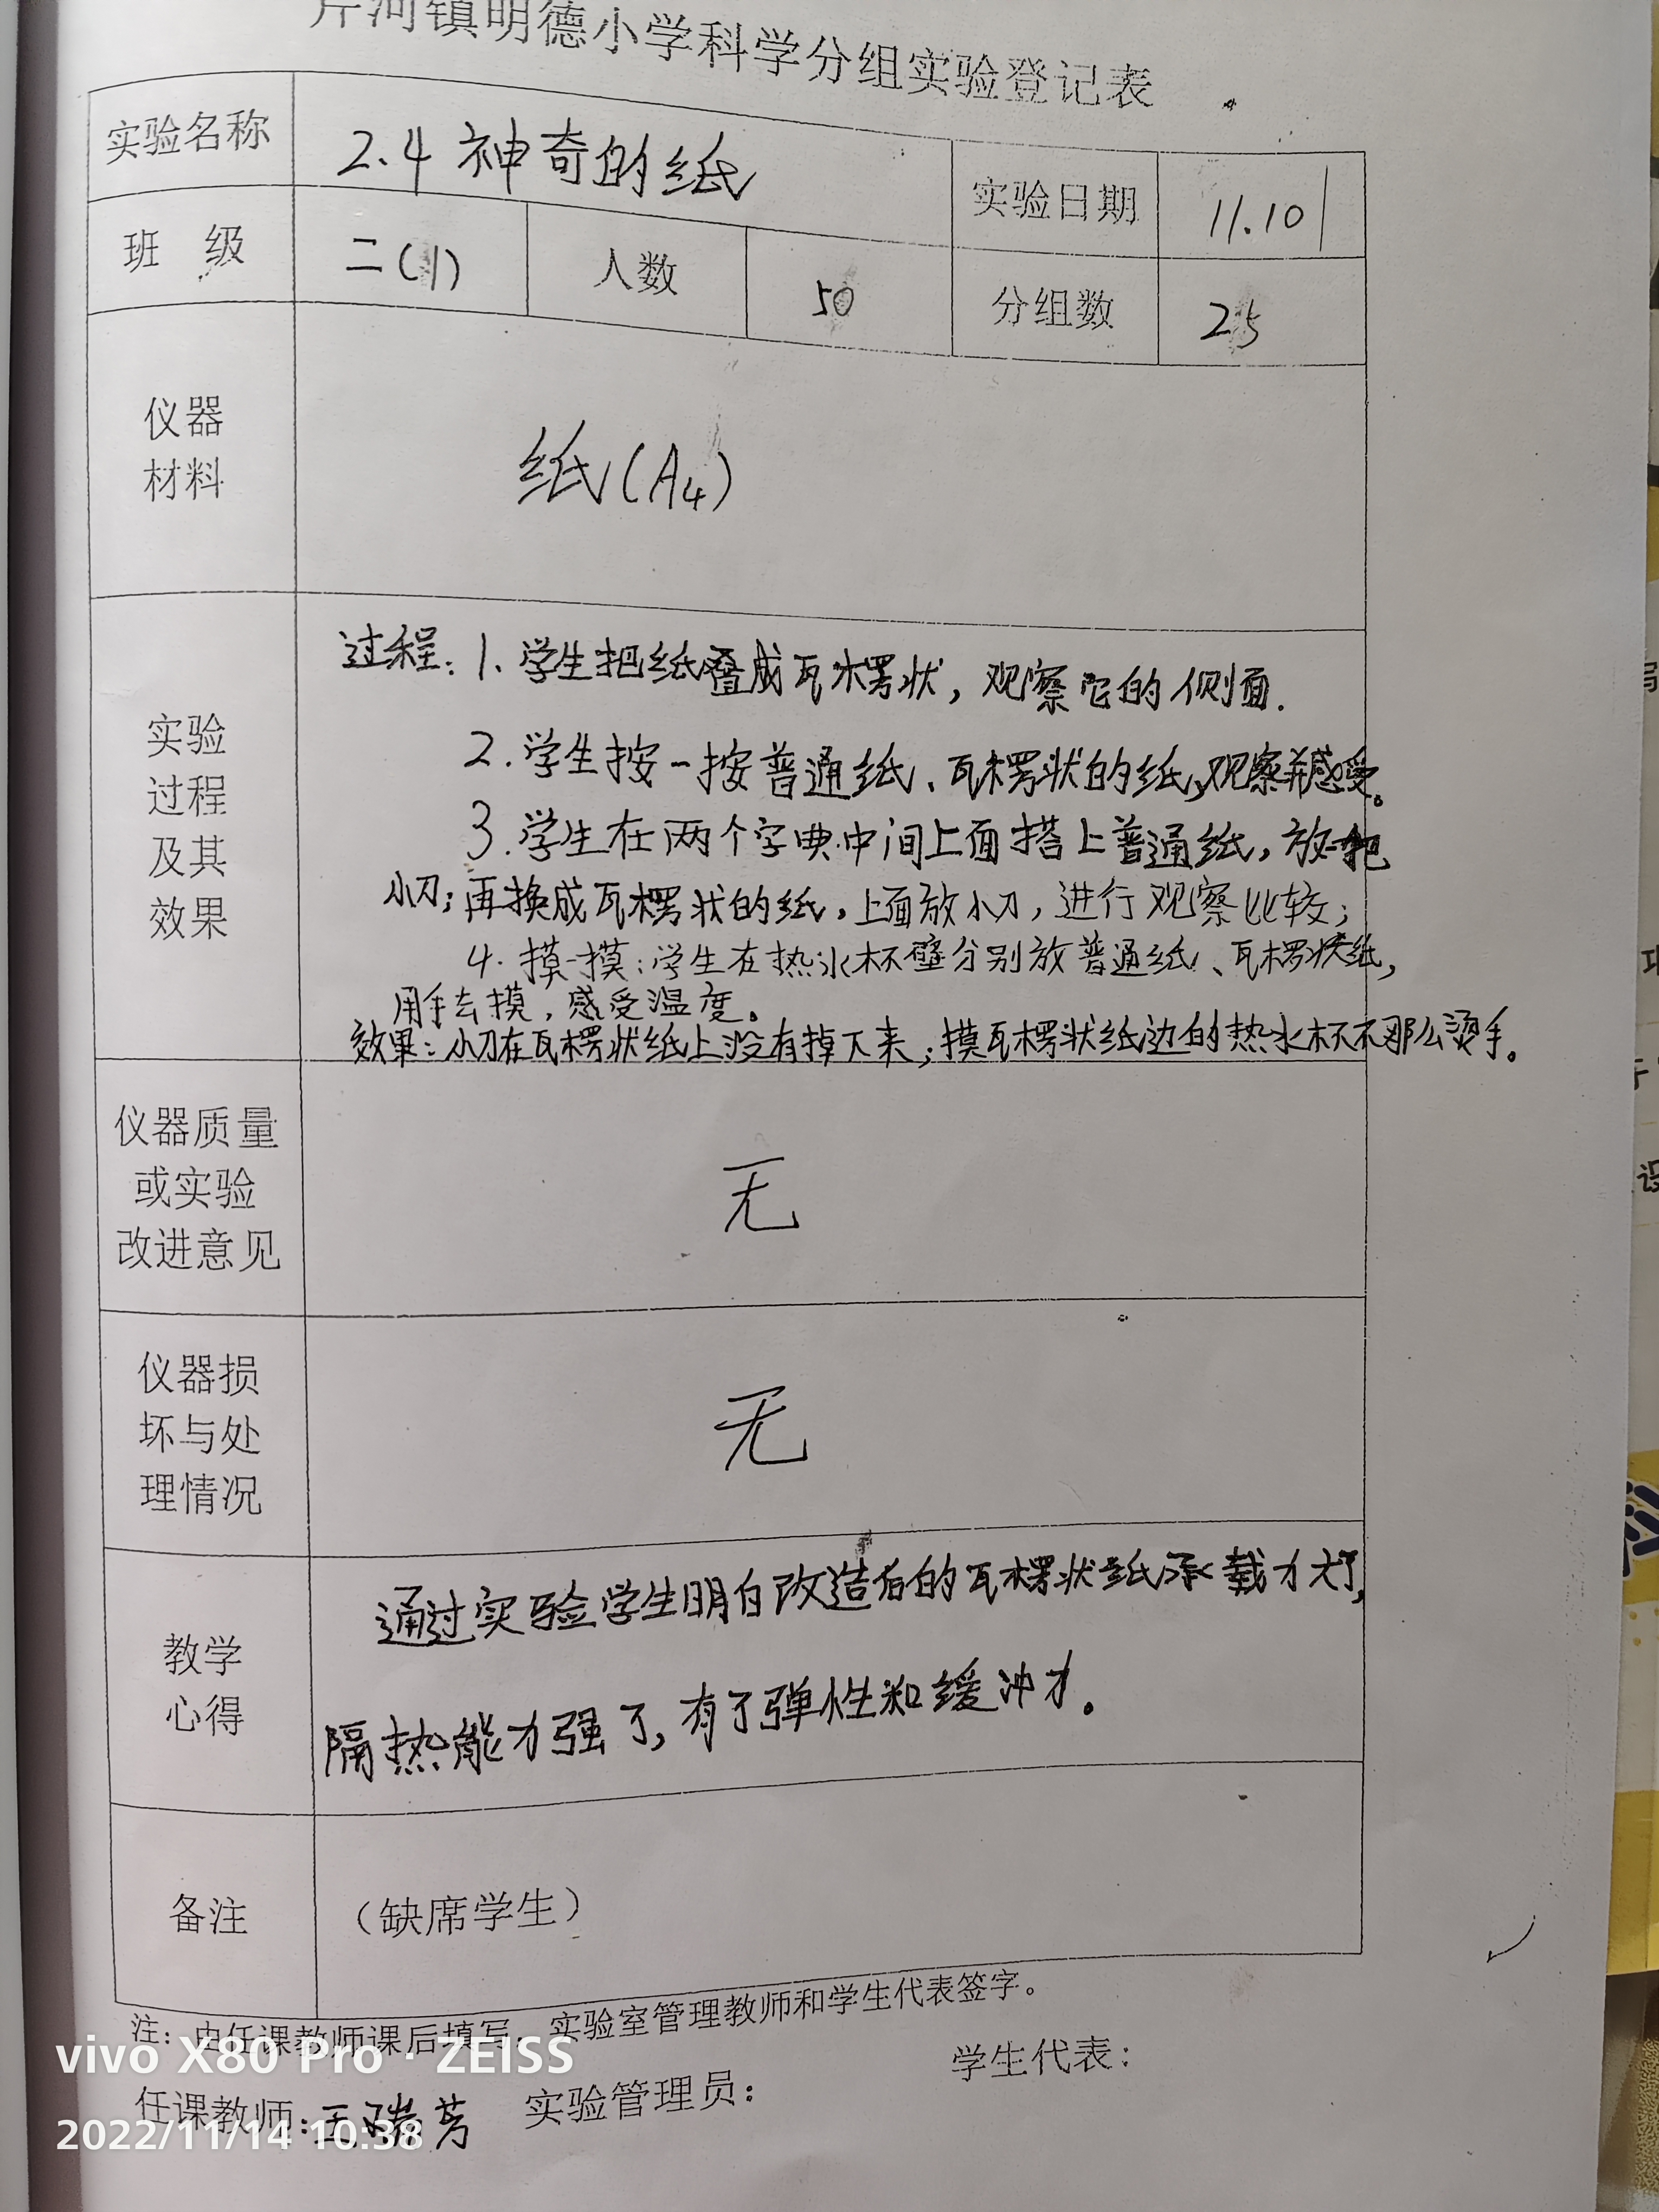 芹河镇明德小学科学分组实验登记表
实验名称 2.4 神奇的纸 实验日期 11.10
班 级 二(1) 人数 50 分组数 25
仪器
材料
纸(A4)
实验
过程
及其
效果
过程: 1. 学生把纸叠成瓦楞状, 观察它的侧面.
2. 学生按一按普通纸、瓦楞状的纸,观察并感受。
3. 学生在两个字典中间上面搭上普通纸, 放一把
小刀; 再换成瓦楞状的纸, 上面放小刀, 进行观察比较;
4. 摸一摸: 学生在热水杯壁分别放普通纸、瓦楞状纸,
用手去摸, 感受温度。
效果: 小刀在瓦楞状纸上没有掉下来; 摸瓦楞状纸边的热水杯不那么烫手。
仪器质量
或实验
改进意见
无
仪器损
坏与处
理情况
无
教学
心得
通过实验学生明白改造后的瓦楞状纸承载力大了,
隔热能力强了, 有了弹性和缓冲力。
备注 (缺席学生)
注: 由任课教师课后填写, 实验室管理教师和学生代表签字。
任课教师: 王瑞芳 实验管理员: 学生代表:
vivo X80 Pro · ZEISS
2022/11/14 10:38